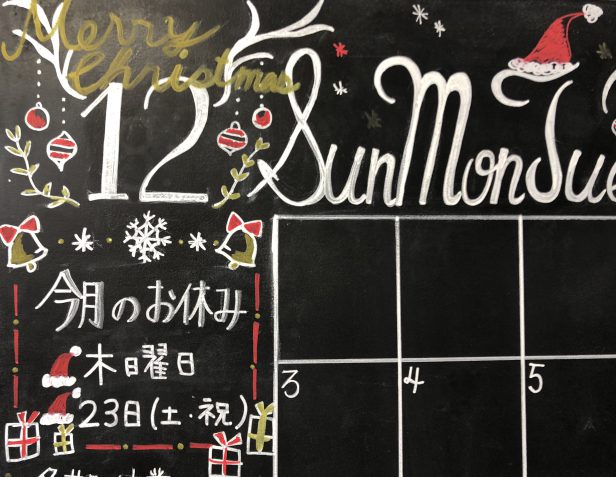 Merry
Christmas
12
Sun Mon Tue
今月のお休み
木曜日
23日(土・祝)
3 4 5